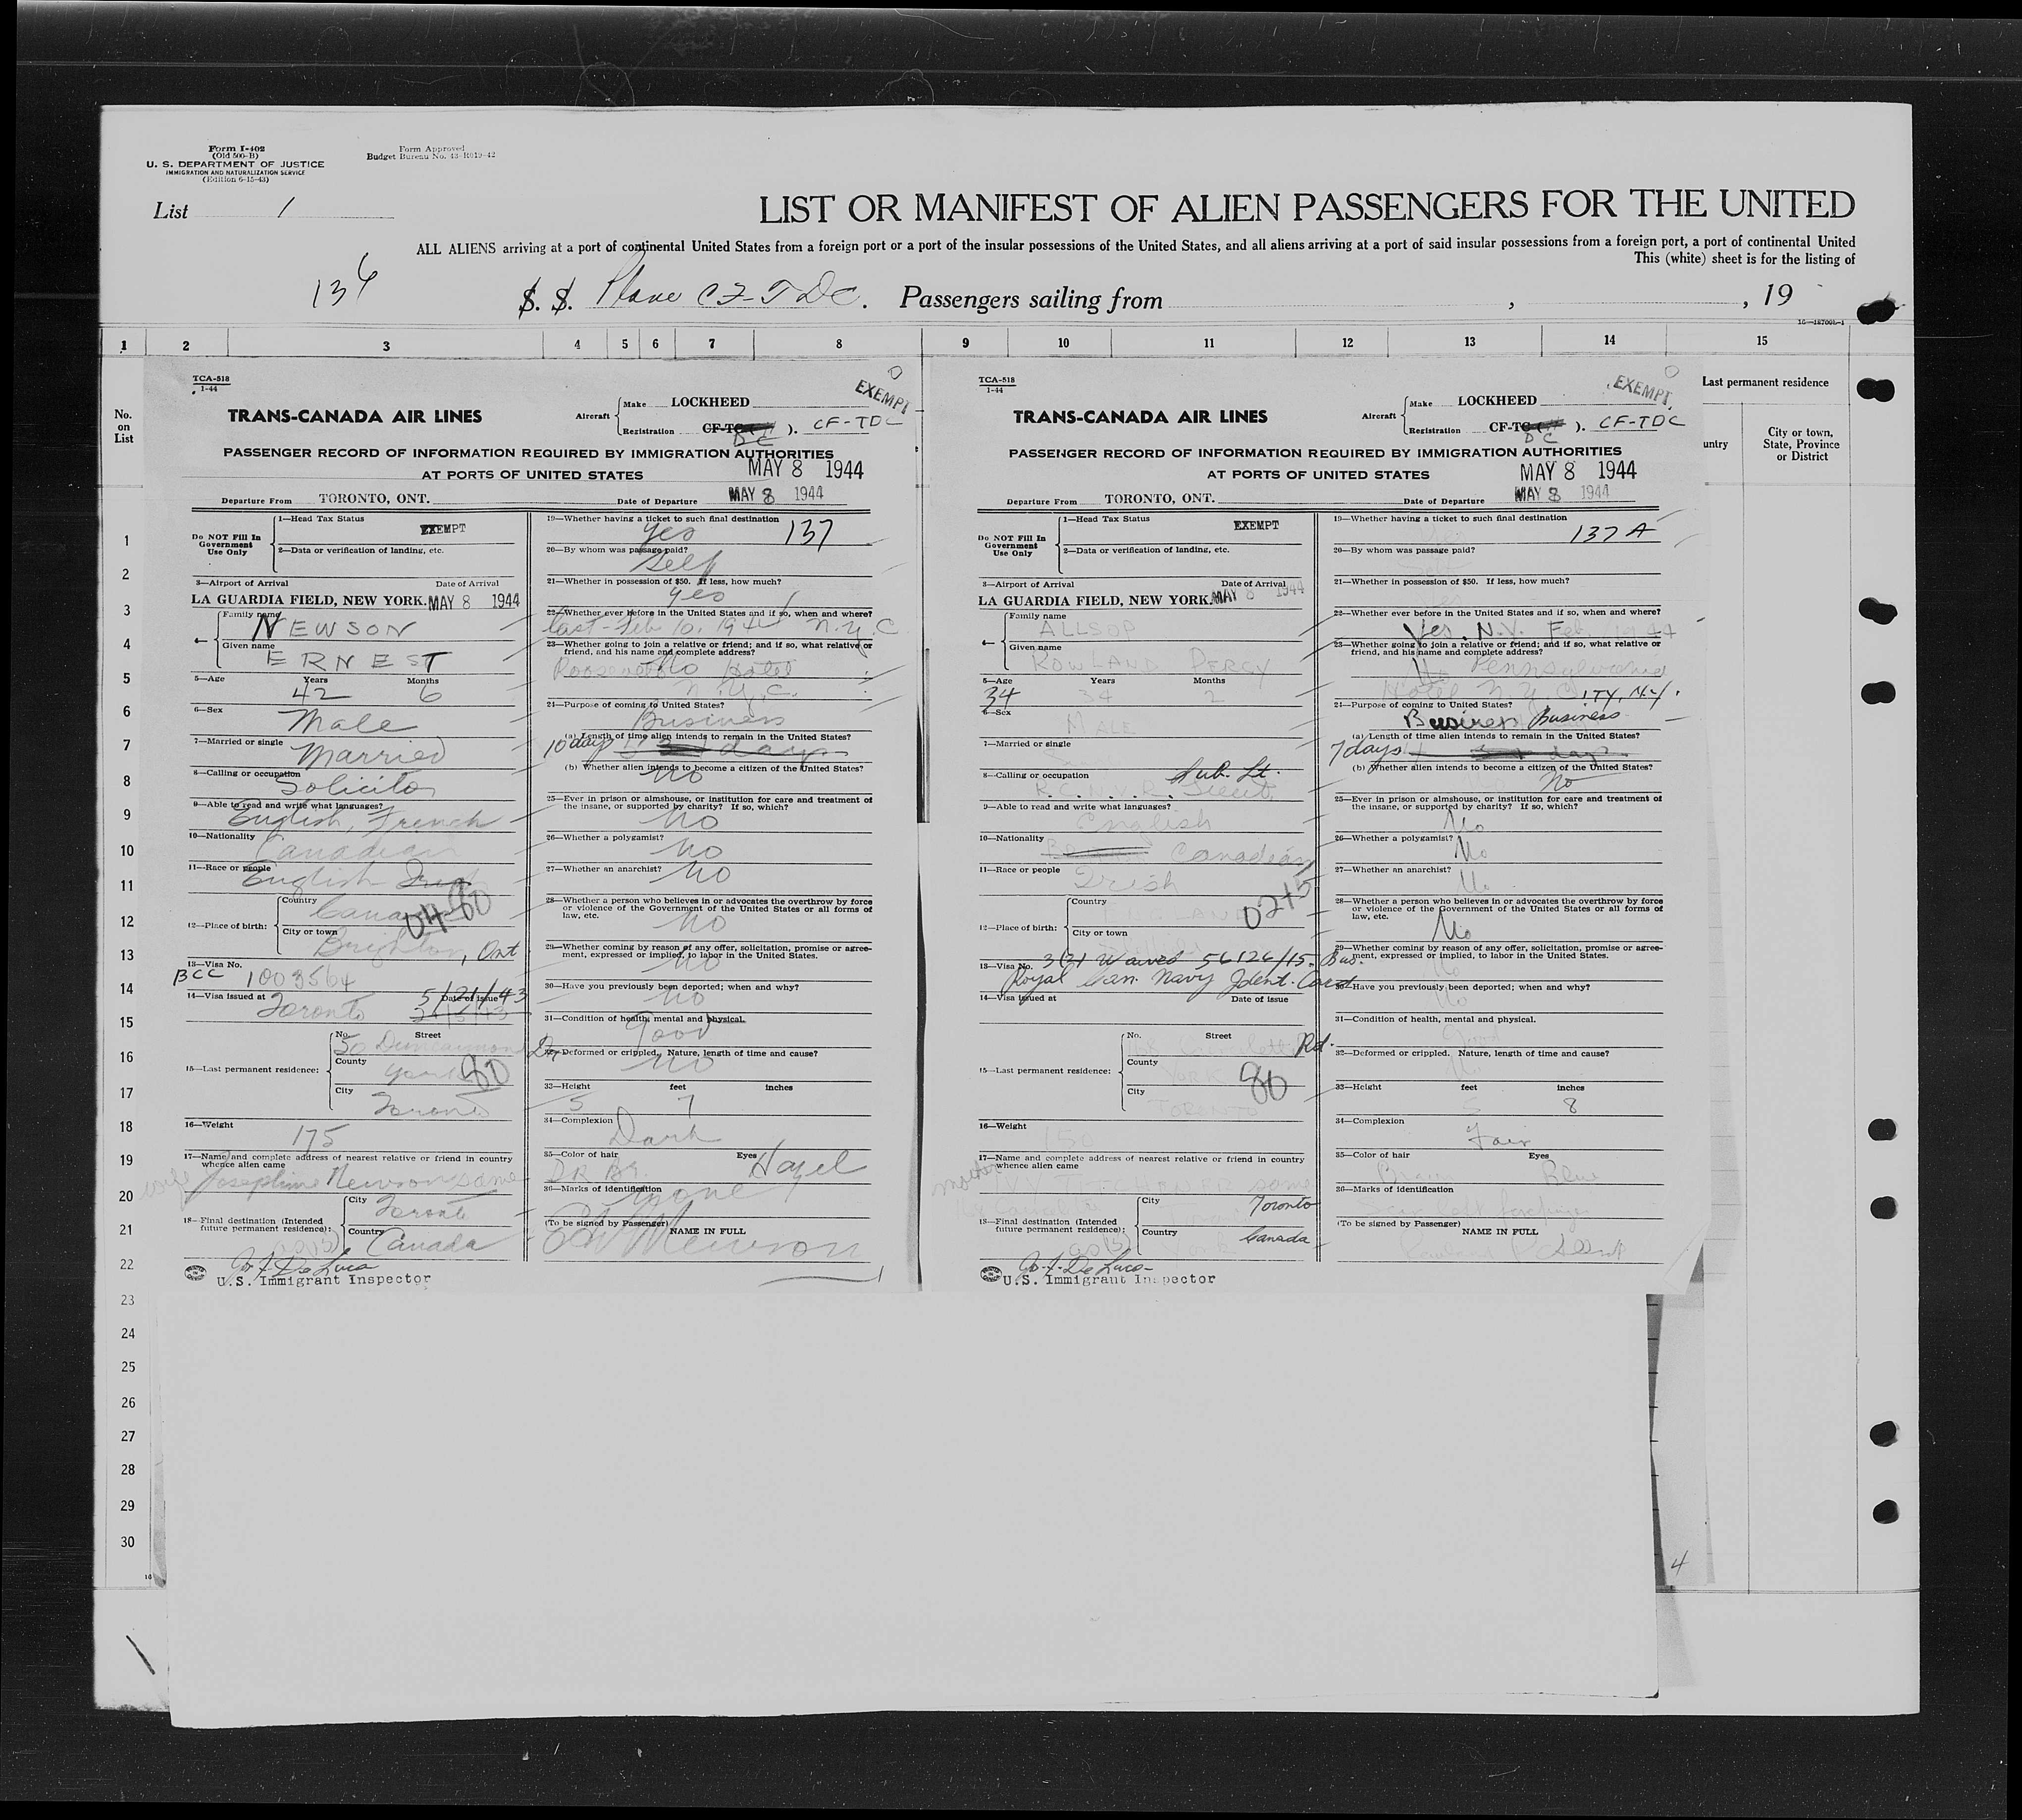 Form I-402
(Old 500-B)
U. S. DEPARTMENT OF JUSTICE
IMMIGRATION AND NATURALIZATION SERVICE
(Edition 6-15-43)
Form Approved
Budget Bureau No. 43-R019-42
List 1
LIST OR MANIFEST OF ALIEN PASSENGERS FOR THE UNITED
ALL ALIENS arriving at a port of continental United States from a foreign port or a port of the insular possessions of the United States, and all aliens arriving at a port of said insular possessions from a foreign port, a port of continental United
This (white) sheet is for the listing of
136
S. S. Plane CF-TDC. Passengers sailing from , , 19
1 2 3 4 5 6 7 8 9 10 11 12 13 14 15
No.
on
List
1
2
3
4
5
6
7
8
9
10
11
12
13
14
15
16
17
18
19
20
21
22
23
24
25
26
27
28
29
30
16
TCA-518
1-44
EXEMPT
TRANS-CANADA AIR LINES
Aircraft
Make LOCKHEED
Registration CF-TC ( ). CF-TDC
DC
PASSENGER RECORD OF INFORMATION REQUIRED BY IMMIGRATION AUTHORITIES
AT PORTS OF UNITED STATES
MAY 8 1944
Departure From TORONTO, ONT. Date of Departure MAY 8 1944
Do NOT Fill In
Government
Use Only
1—Head Tax Status EXEMPT
2—Data or verification of landing, etc.
3—Airport of Arrival Date of Arrival
LA GUARDIA FIELD, NEW YORK. MAY 8 1944
4— Family name NEWSON
Given name ERNEST
5—Age Years 42 Months 6
6—Sex Male
7—Married or single Married
8—Calling or occupation Solicitor
9—Able to read and write what languages? English, French
10—Nationality Canadian
11—Race or people English Irish
12—Place of birth: Country Canada 0480
City or town Brighton, Ont
13—Visa No. BCC 1003564
14—Visa issued at Toronto Date of issue 5/21/43
15—Last permanent residence: No. 50 Street Dr
County York 80
City Toronto
16—Weight 175
17—Name and complete address of nearest relative or friend in country
whence alien came
wife Josephine Newson same
18—Final destination (Intended
future permanent residence): City Toronto
Country Canada
Jo. J. De Luca
U.S. Immigrant Inspector
19—Whether having a ticket to such final destination
Yes 137
20—By whom was passage paid?
Self
21—Whether in possession of $50. If less, how much?
Yes
22—Whether ever before in the United States and if so, when and where?
Last - Feb 10, 1944 N.Y.C
23—Whether going to join a relative or friend; and if so, what relative or
friend, and his name and complete address?
No
Roosevelt Hotel
N.Y.C.
24—Purpose of coming to United States?
Business
(a) Length of time alien intends to remain in the United States?
10 days days
(b) Whether alien intends to become a citizen of the United States?
No
25—Ever in prison or almshouse, or institution for care and treatment of
the insane, or supported by charity? If so, which?
No
26—Whether a polygamist? No
27—Whether an anarchist? No
28—Whether a person who believes in or advocates the overthrow by force
or violence of the Government of the United States or all forms of
law, etc.
No
29—Whether coming by reason of any offer, solicitation, promise or agree-
ment, expressed or implied, to labor in the United States.
No
30—Have you previously been deported; when and why?
No
31—Condition of health, mental and physical.
Good
32—Deformed or crippled. Nature, length of time and cause?
No
33—Height 5 feet 7 inches
34—Complexion Dark
35—Color of hair DR BR Eyes Hazel
36—Marks of identification None
(To be signed by Passenger) NAME IN FULL
Newson
TCA-518
1-44
EXEMPT
TRANS-CANADA AIR LINES
Aircraft
Make LOCKHEED
Registration CF-TC ( ). CF-TDC
DC
PASSENGER RECORD OF INFORMATION REQUIRED BY IMMIGRATION AUTHORITIES
AT PORTS OF UNITED STATES
MAY 8 1944
Departure From TORONTO, ONT. Date of Departure MAY 8 1944
Do NOT Fill In
Government
Use Only
1—Head Tax Status EXEMPT
2—Data or verification of landing, etc.
3—Airport of Arrival Date of Arrival
LA GUARDIA FIELD, NEW YORK. MAY 8 1944
4— Family name ALLSOP
Given name ROWLAND PERCY
5—Age 34 Years 34 Months 2
6—Sex MALE
7—Married or single
8—Calling or occupation Sub. Lt.
R.C.N.V.R.
9—Able to read and write what languages? English
10—Nationality Canadian
11—Race or people Irish
12—Place of birth: Country 0215
City or town
13—Visa No. 3(2) Waived 56126/15. Bus.
Royal Can. Navy Ident. Card
14—Visa issued at Date of issue
15—Last permanent residence: No. Street Rd.
County YORK 80
City TORONTO
16—Weight 150
17—Name and complete address of nearest relative or friend in country
whence alien came
mother same
18—Final destination (Intended
future permanent residence): City Toronto
Country Canada
Jo. J. De Luca
U.S. Immigrant Inspector
19—Whether having a ticket to such final destination
137 A
20—By whom was passage paid?
21—Whether in possession of $50. If less, how much?
22—Whether ever before in the United States and if so, when and where?
Yes. N.Y. Feb. 1944
23—Whether going to join a relative or friend; and if so, what relative or
friend, and his name and complete address?
No Pennsylvania
Hotel N.Y. CITY, N.Y.
24—Purpose of coming to United States?
Business Business
(a) Length of time alien intends to remain in the United States?
7 days days
(b) Whether alien intends to become a citizen of the United States?
No
25—Ever in prison or almshouse, or institution for care and treatment of
the insane, or supported by charity? If so, which?
No
26—Whether a polygamist? No
27—Whether an anarchist? No
28—Whether a person who believes in or advocates the overthrow by force
or violence of the Government of the United States or all forms of
law, etc.
No
29—Whether coming by reason of any offer, solicitation, promise or agree-
ment, expressed or implied, to labor in the United States.
No
30—Have you previously been deported; when and why?
No
31—Condition of health, mental and physical.
Good
32—Deformed or crippled. Nature, length of time and cause?
No
33—Height 5 feet 8 inches
34—Complexion Fair
35—Color of hair Brown Eyes Blue
36—Marks of identification
(To be signed by Passenger) NAME IN FULL
Last permanent residence
untry
City or town,
State, Province
or District
4